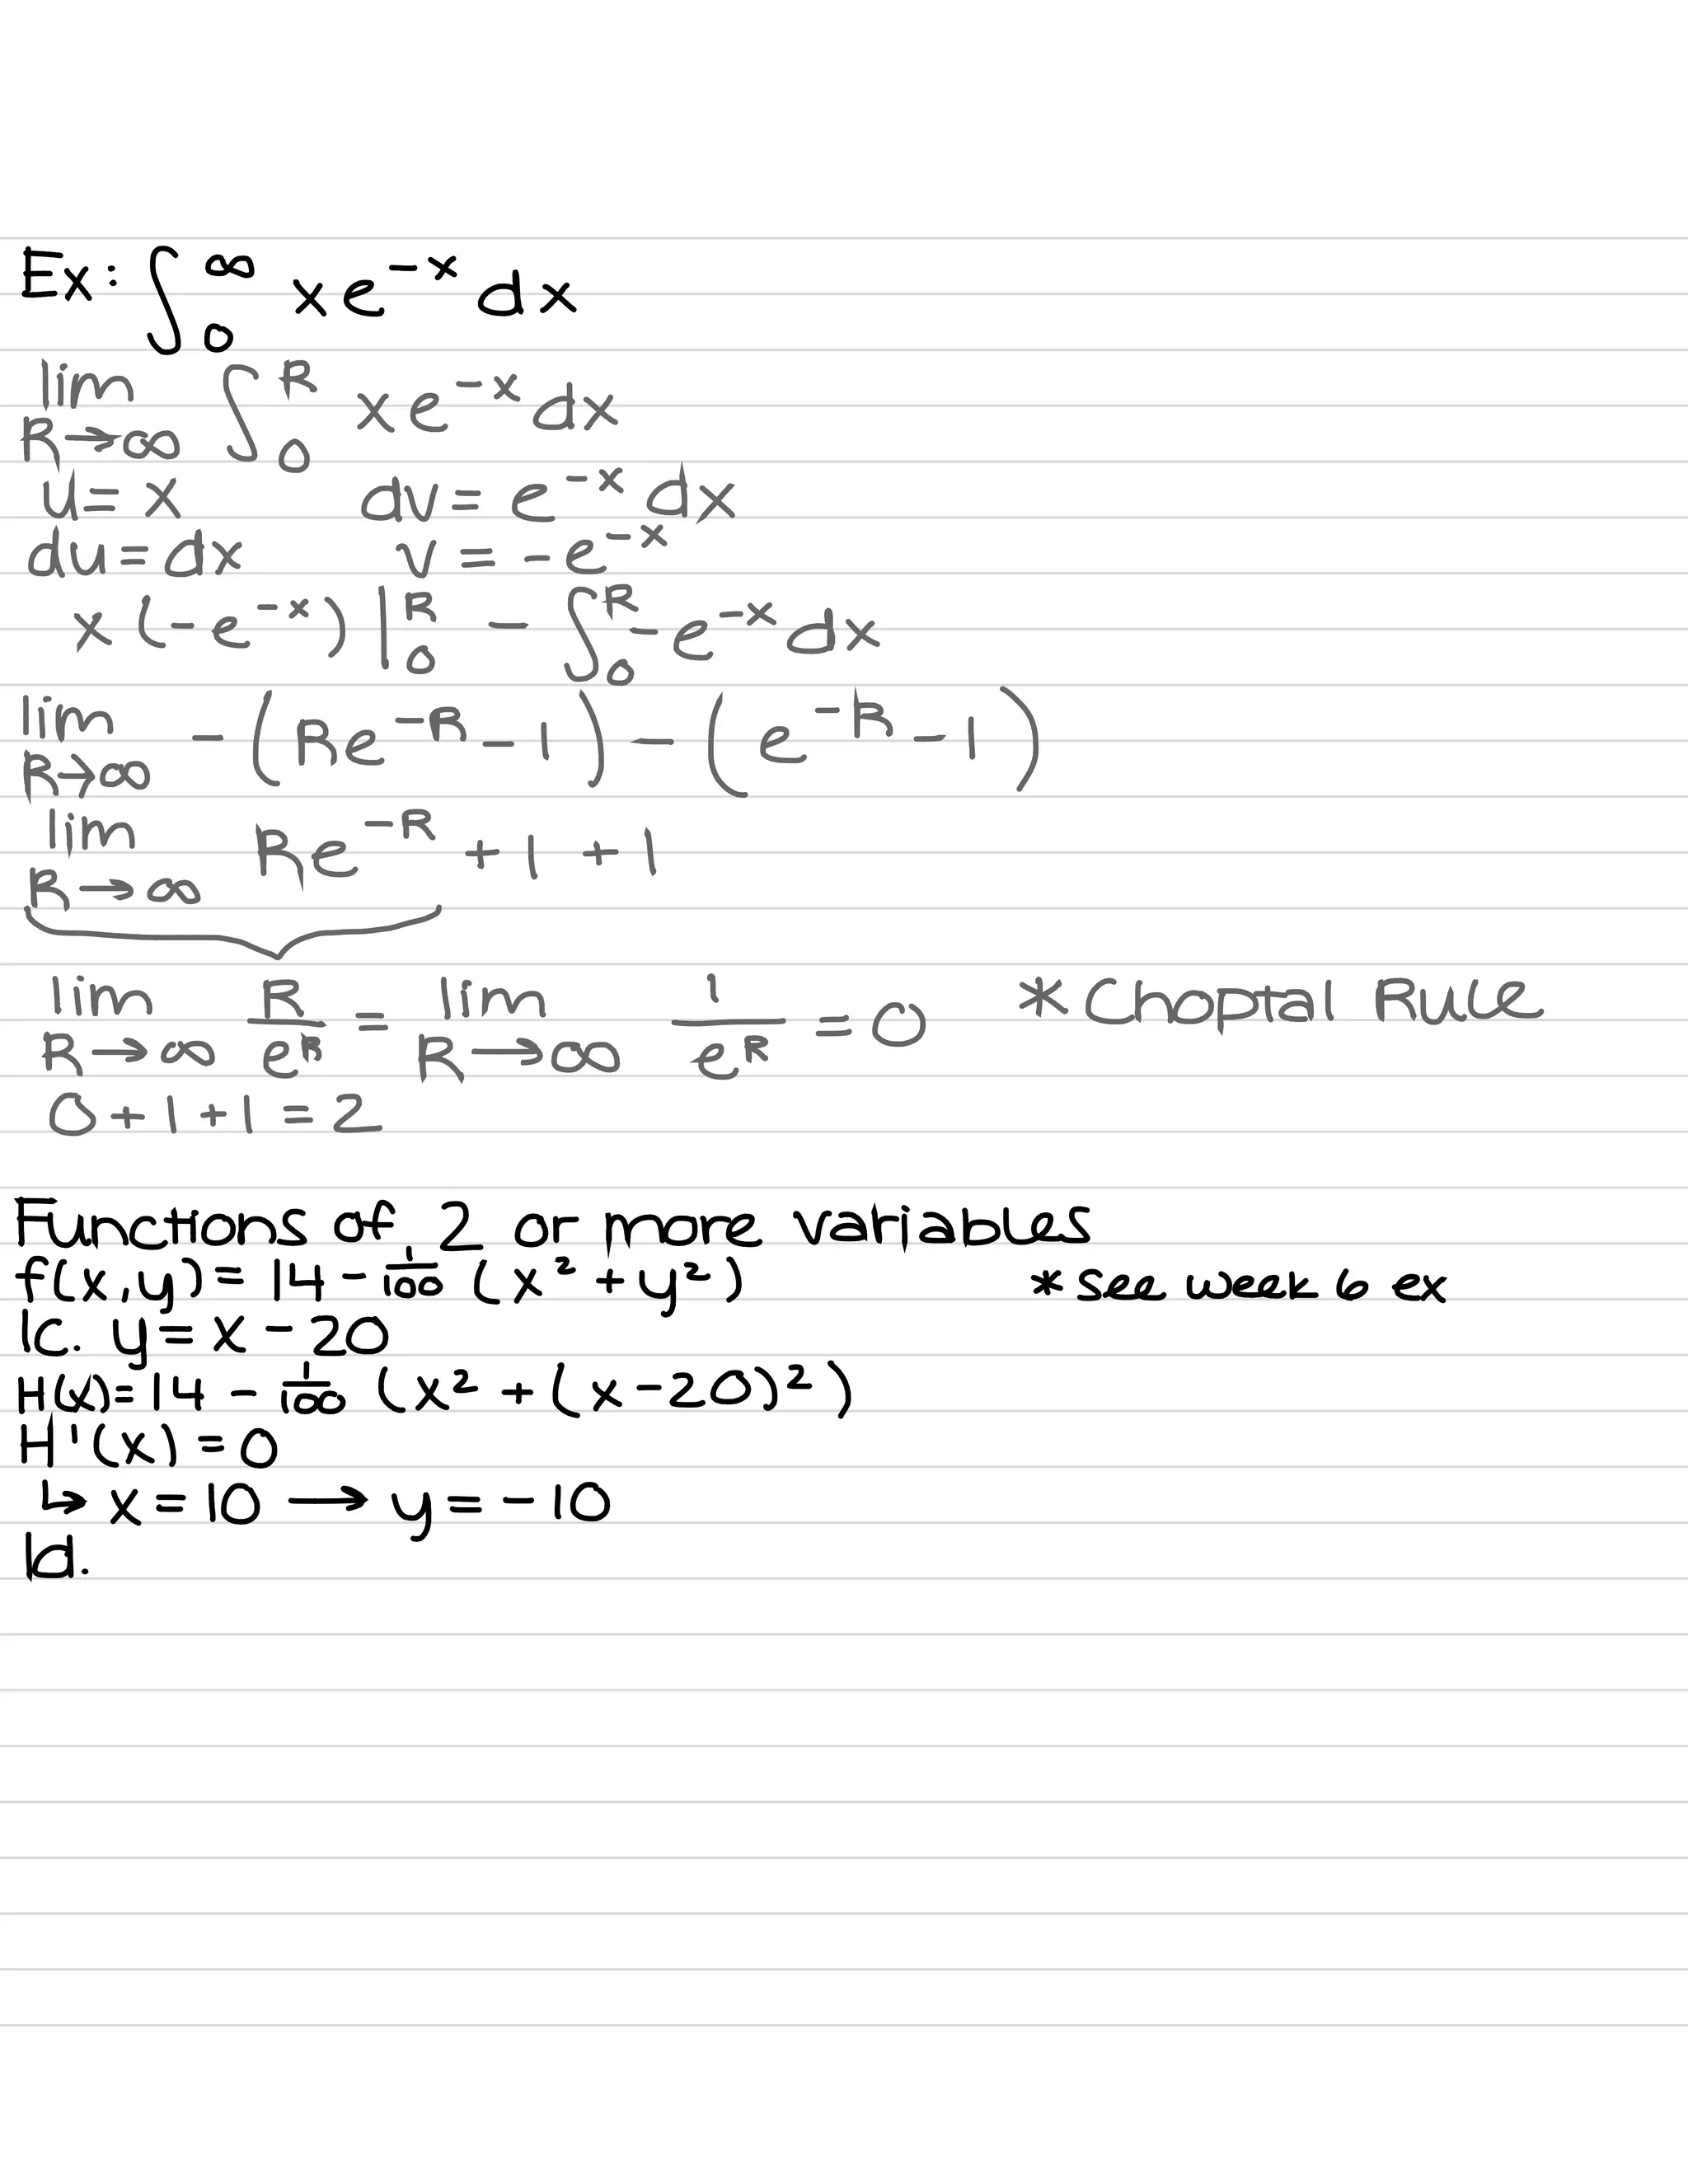 Ex: ∫₀^∞ xe^{-x} dx
lim R→∞ ∫₀^R xe^{-x} dx
u = x dv = e^{-x} dx
du = dx v = -e^{-x}
x(-e^{-x})|₀^R - ∫₀^R -e^{-x} dx
lim R→∞ -(Re^{-R} - 1) - (e^{-R} - 1)
lim R→∞ Re^{-R} + 1 + 1
lim R→∞ R/e^R = lim R→∞ 1/e^R = 0 * Choptal Rule
0 + 1 + 1 = 2
Functions of 2 or more variables
f(x,y) = 14 - 1/100 (x² + y²) * see week 6 ex
1c. y = x - 20
H(x) = 14 - 1/100 (x² + (x - 20)²)
H'(x) = 0
↳ x = 10 → y = -10
1d.